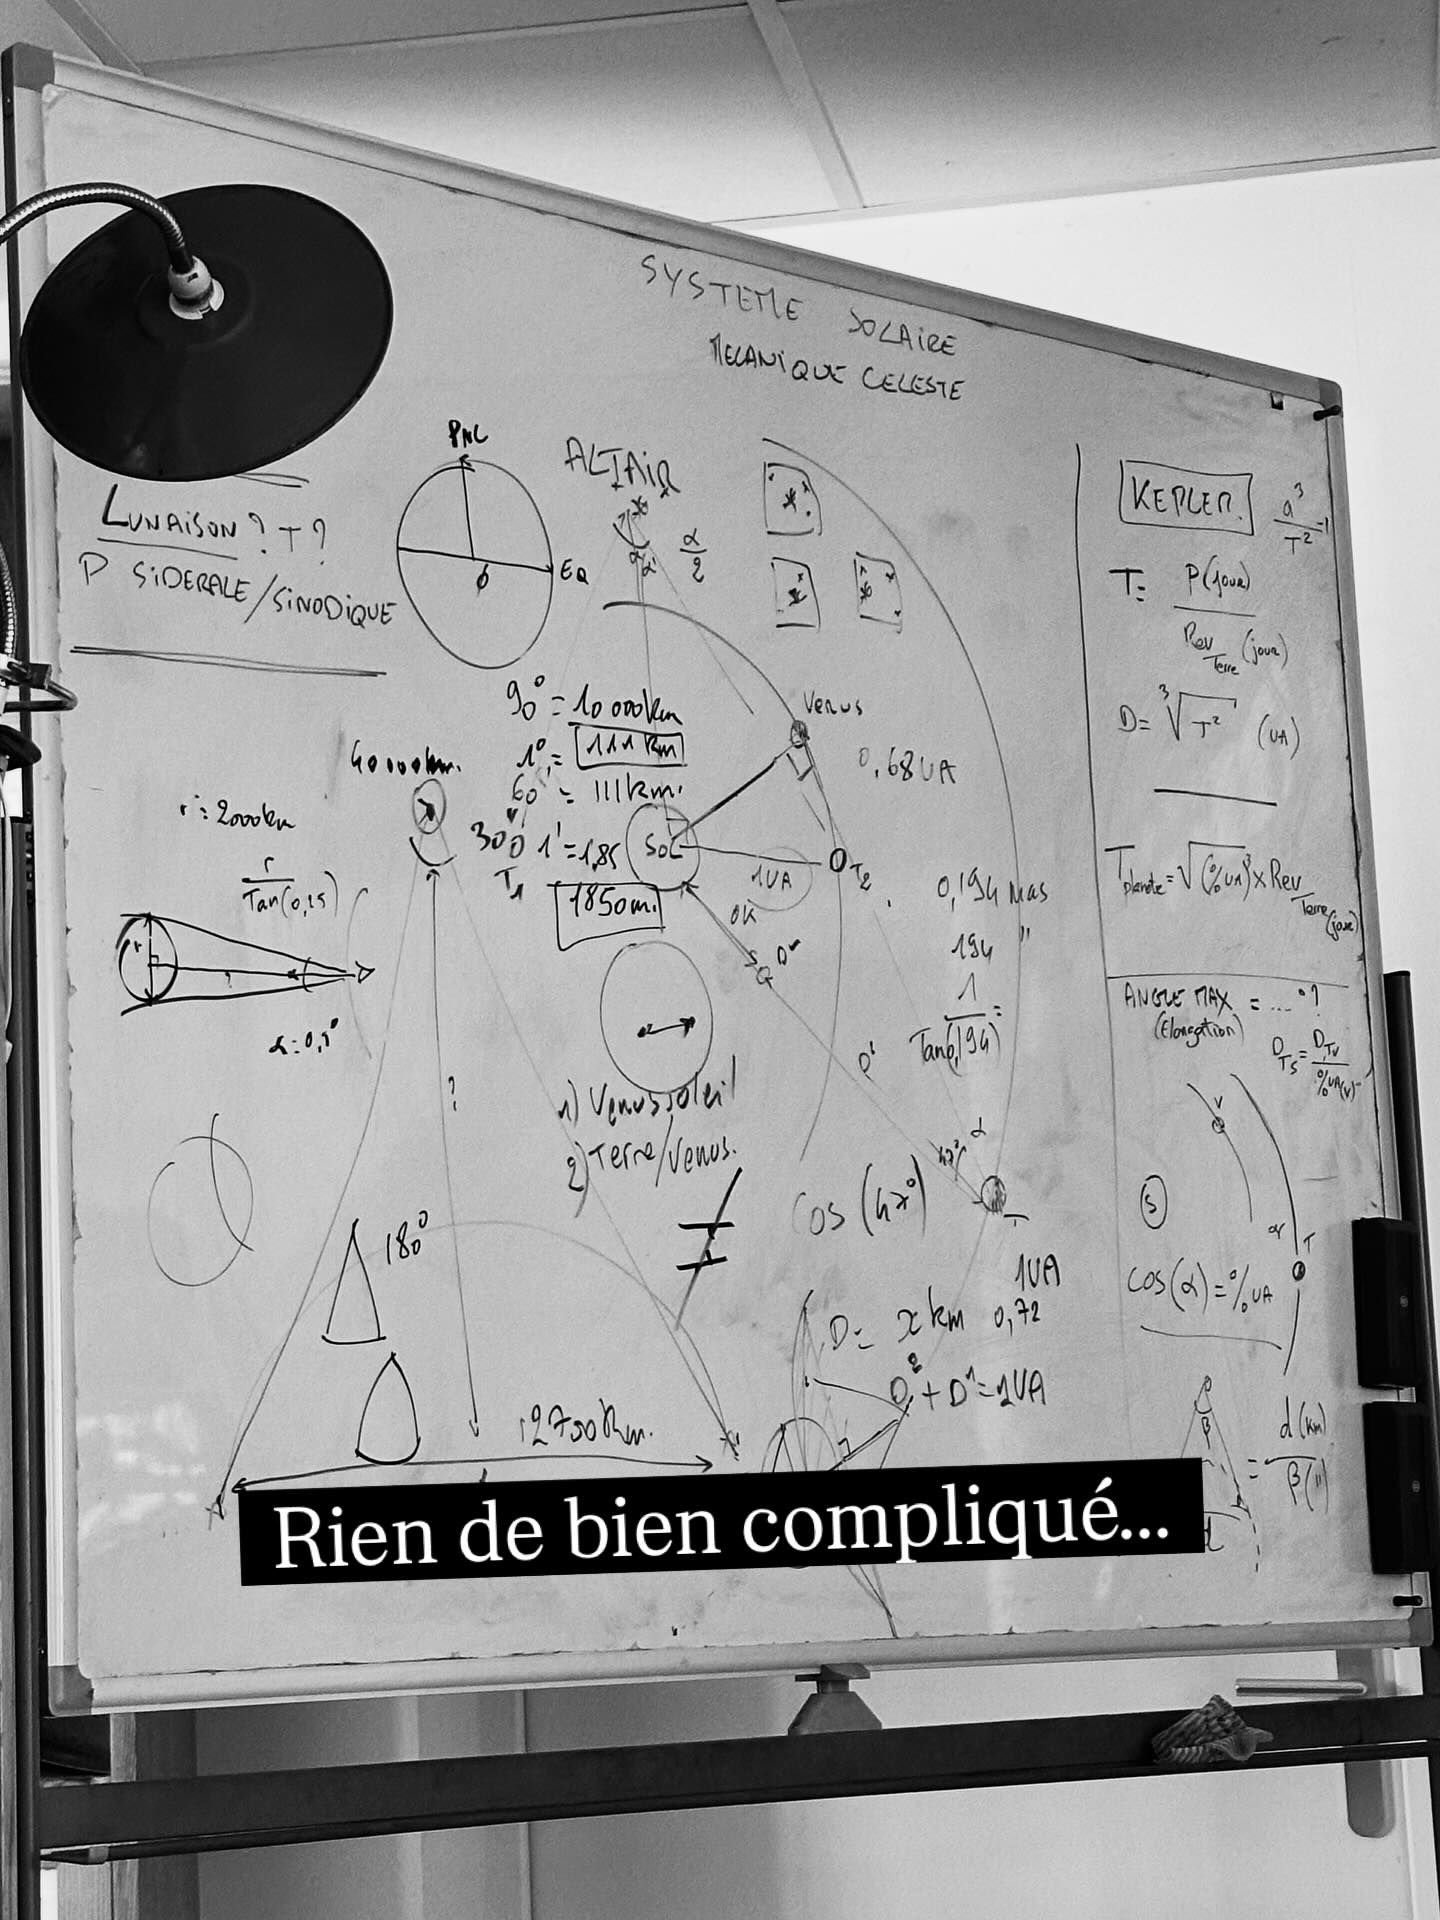 SYSTEME SOLAIRE
MECANIQUE CELESTE
LUNAISON ? T ?
P SIDERALE/SINODIQUE
PNC
EQ
ALTAIR
α
α/2
90° = 10 000 km
1° = 111 km
60' = 111 km.
1' = 1,85
1850 m.
300
T1
40 000 km.
r = 2000 km
r
Tan(0,25)
r
?
α = 0,5°
Venus
0,68 UA
SOL
1UA
T2
OK
D²
D¹
0,194 Mas
194 "
1
Tan(0,194) =
1) Venus soleil
2) Terre/Venus.
?
180°
12700 km.
47°
α
T
Cos (47°)
1UA
D = x km 0,72
D² + D¹ = 1UA
KEPLER.
a³/T² = 1
T = P(jour)
Rev Terre (jour)
D = ³√T² (UA)
T planète = √(% UA)³ x Rev Terre (jour)
ANGLE MAX = ....° ?
(Elongation)
D TS = D TV / % UA(V)
V
S
α
T
COS(α) = % UA
β
= d (km)
β (")
d
Rien de bien compliqué...